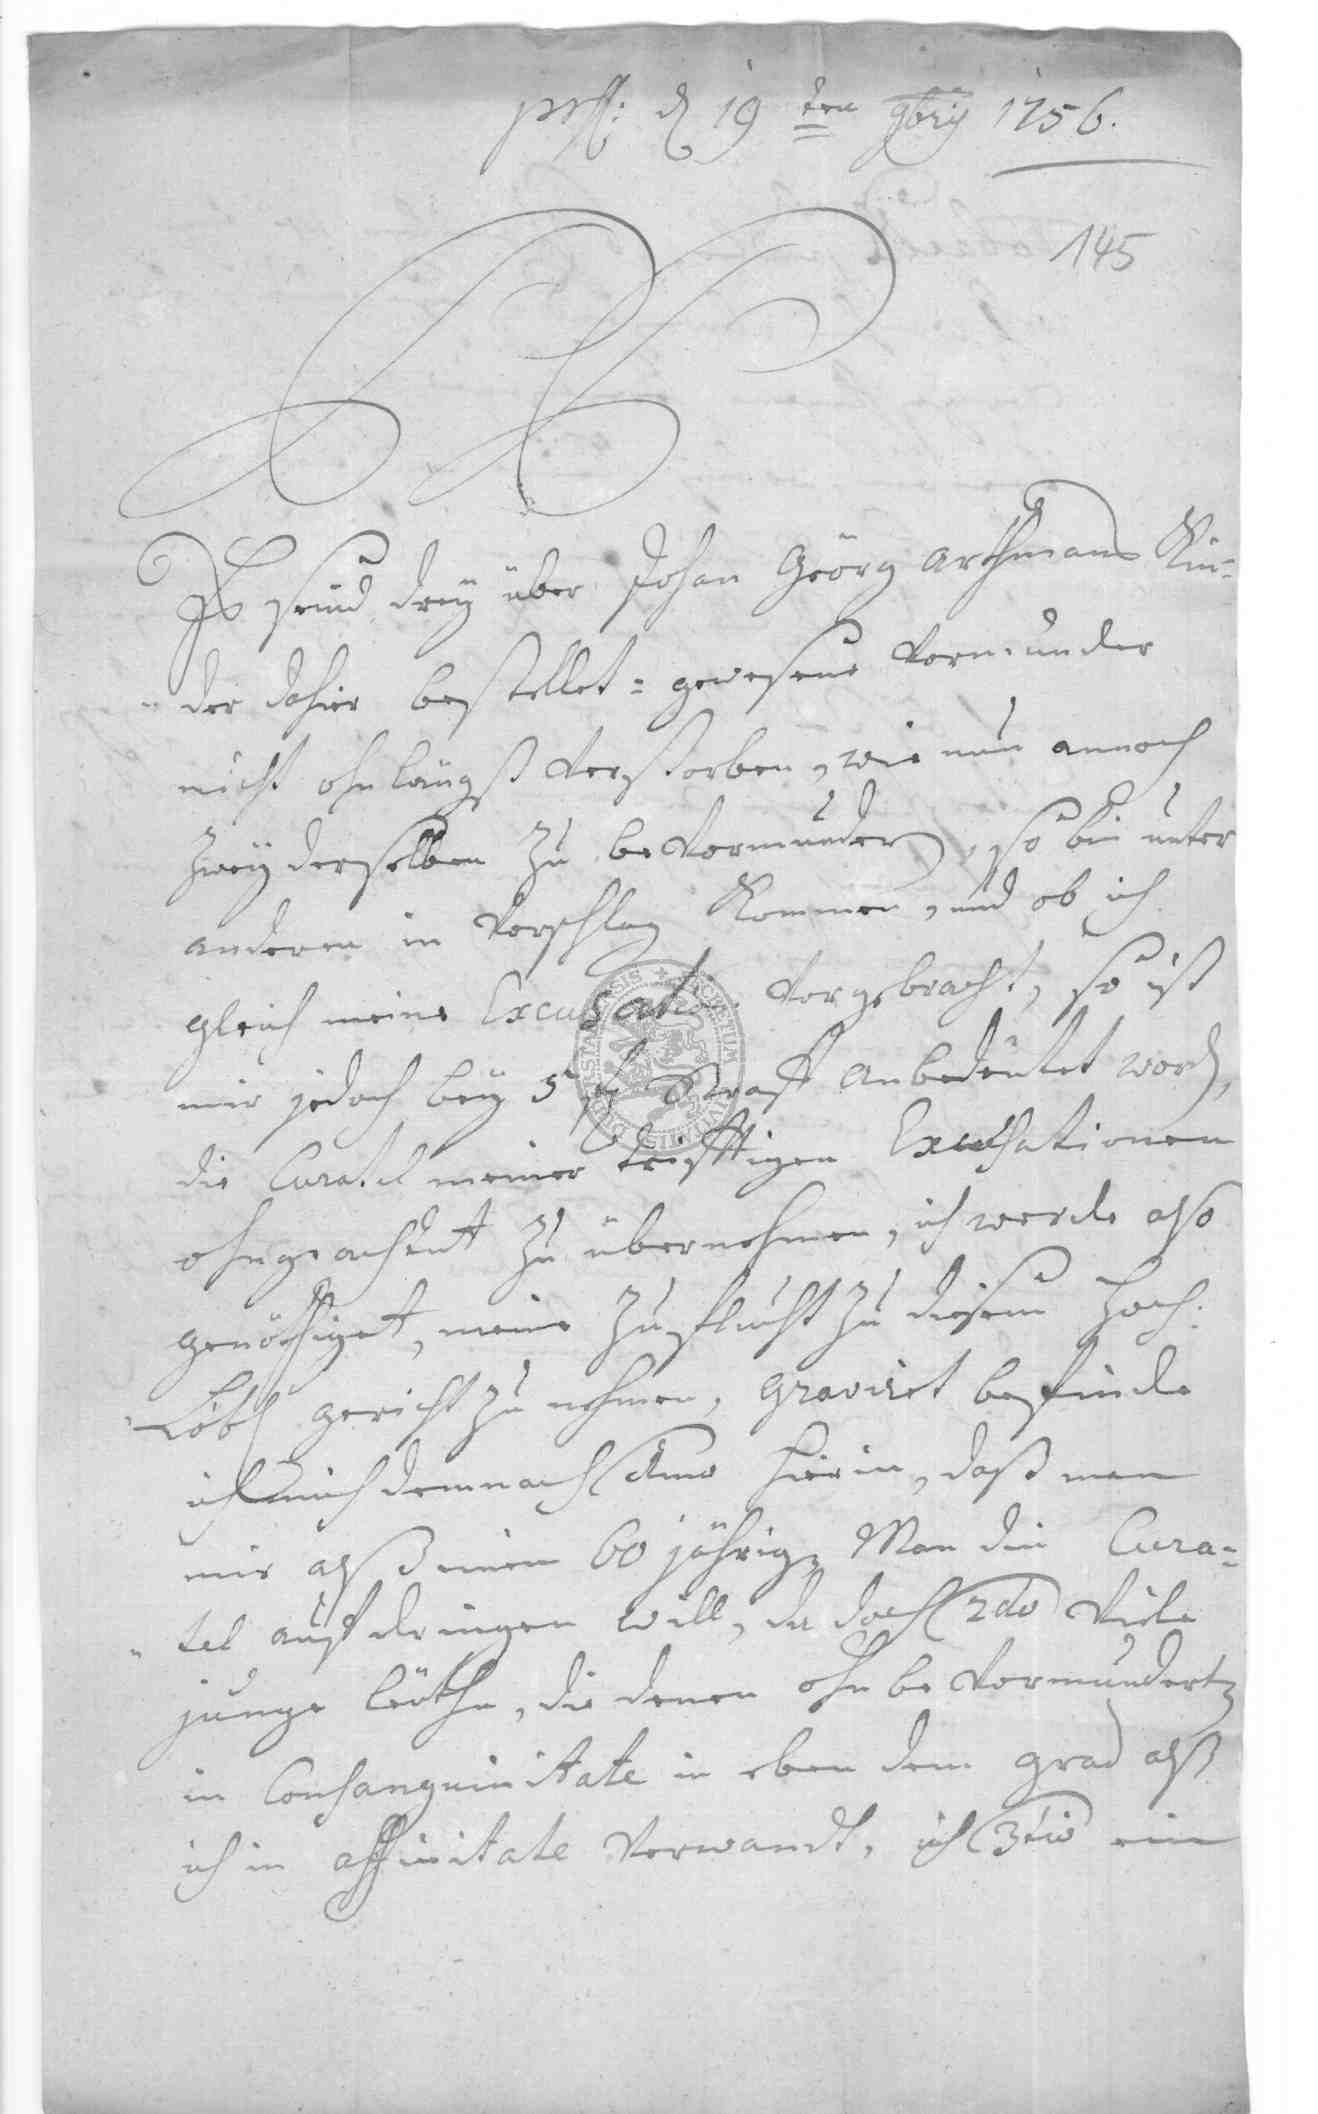 prß: d 19ten 9bris 1756.
145
Es seind dreÿ über Johan Geörg Arthmans Kin-
der dahier bestellet-gewesene Vormunder
nicht ohnlängst Verstorben, wie nun annoch
zweÿ derselben zu beVormunden, so bin unter
anderen in Vorschlag Kommen, und ob ich
gleich meine Excusation Vorgebracht, so ist
mir jedoch beÿ 5 fl Straff anbedeutet word,
die Curatel meiner trifftigen Excusationen
ohngeachtet zu übernehmen, ich werde also
genöthiget, meine Zuflucht zu diesem Hoch-
Löbl gericht zu nehmen, Gravirt befinde
ich mich demnach 1mo hierin, daß man
mir alß einem 60 jährig Man die Cura-
tel aufdringen will, da doch 2do Viele
junge leuthe, die denen ohnbeVormunderten
in Consanguinitate in eben dem grad alß
ich in affinitate Verwandt, ich 3tio ein